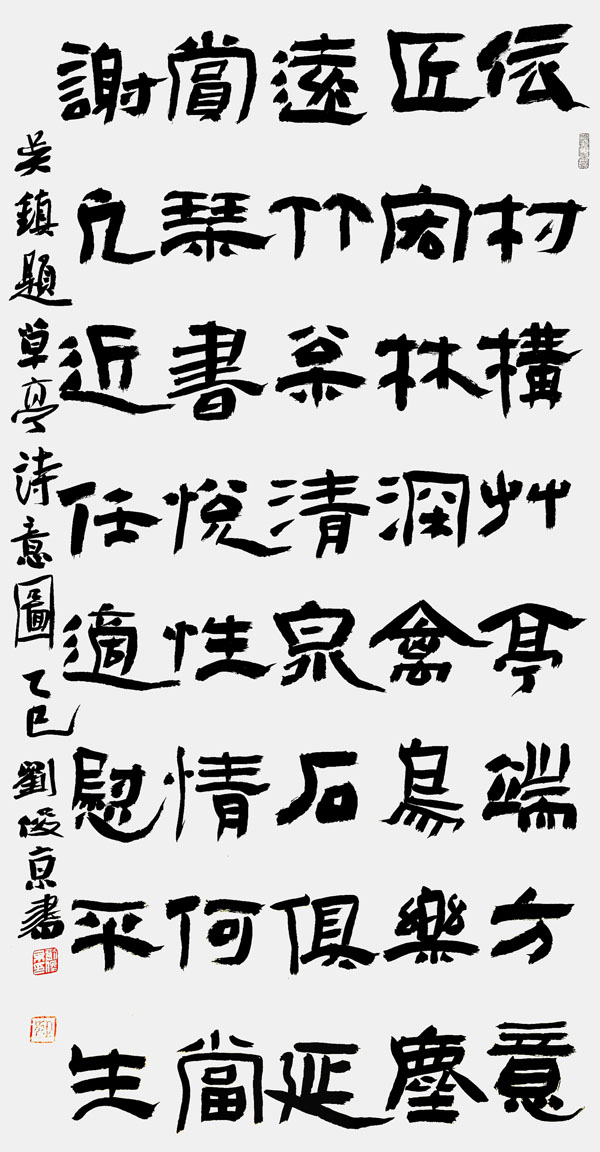 依村構艸亭端方意
匠宏林深禽鳥樂塵
遠竹枀清泉石俱延
賞琹書悅性情何當
謝凡近任適慰平生
吳鎮題草亭詩意圖乙巳劉俊京書